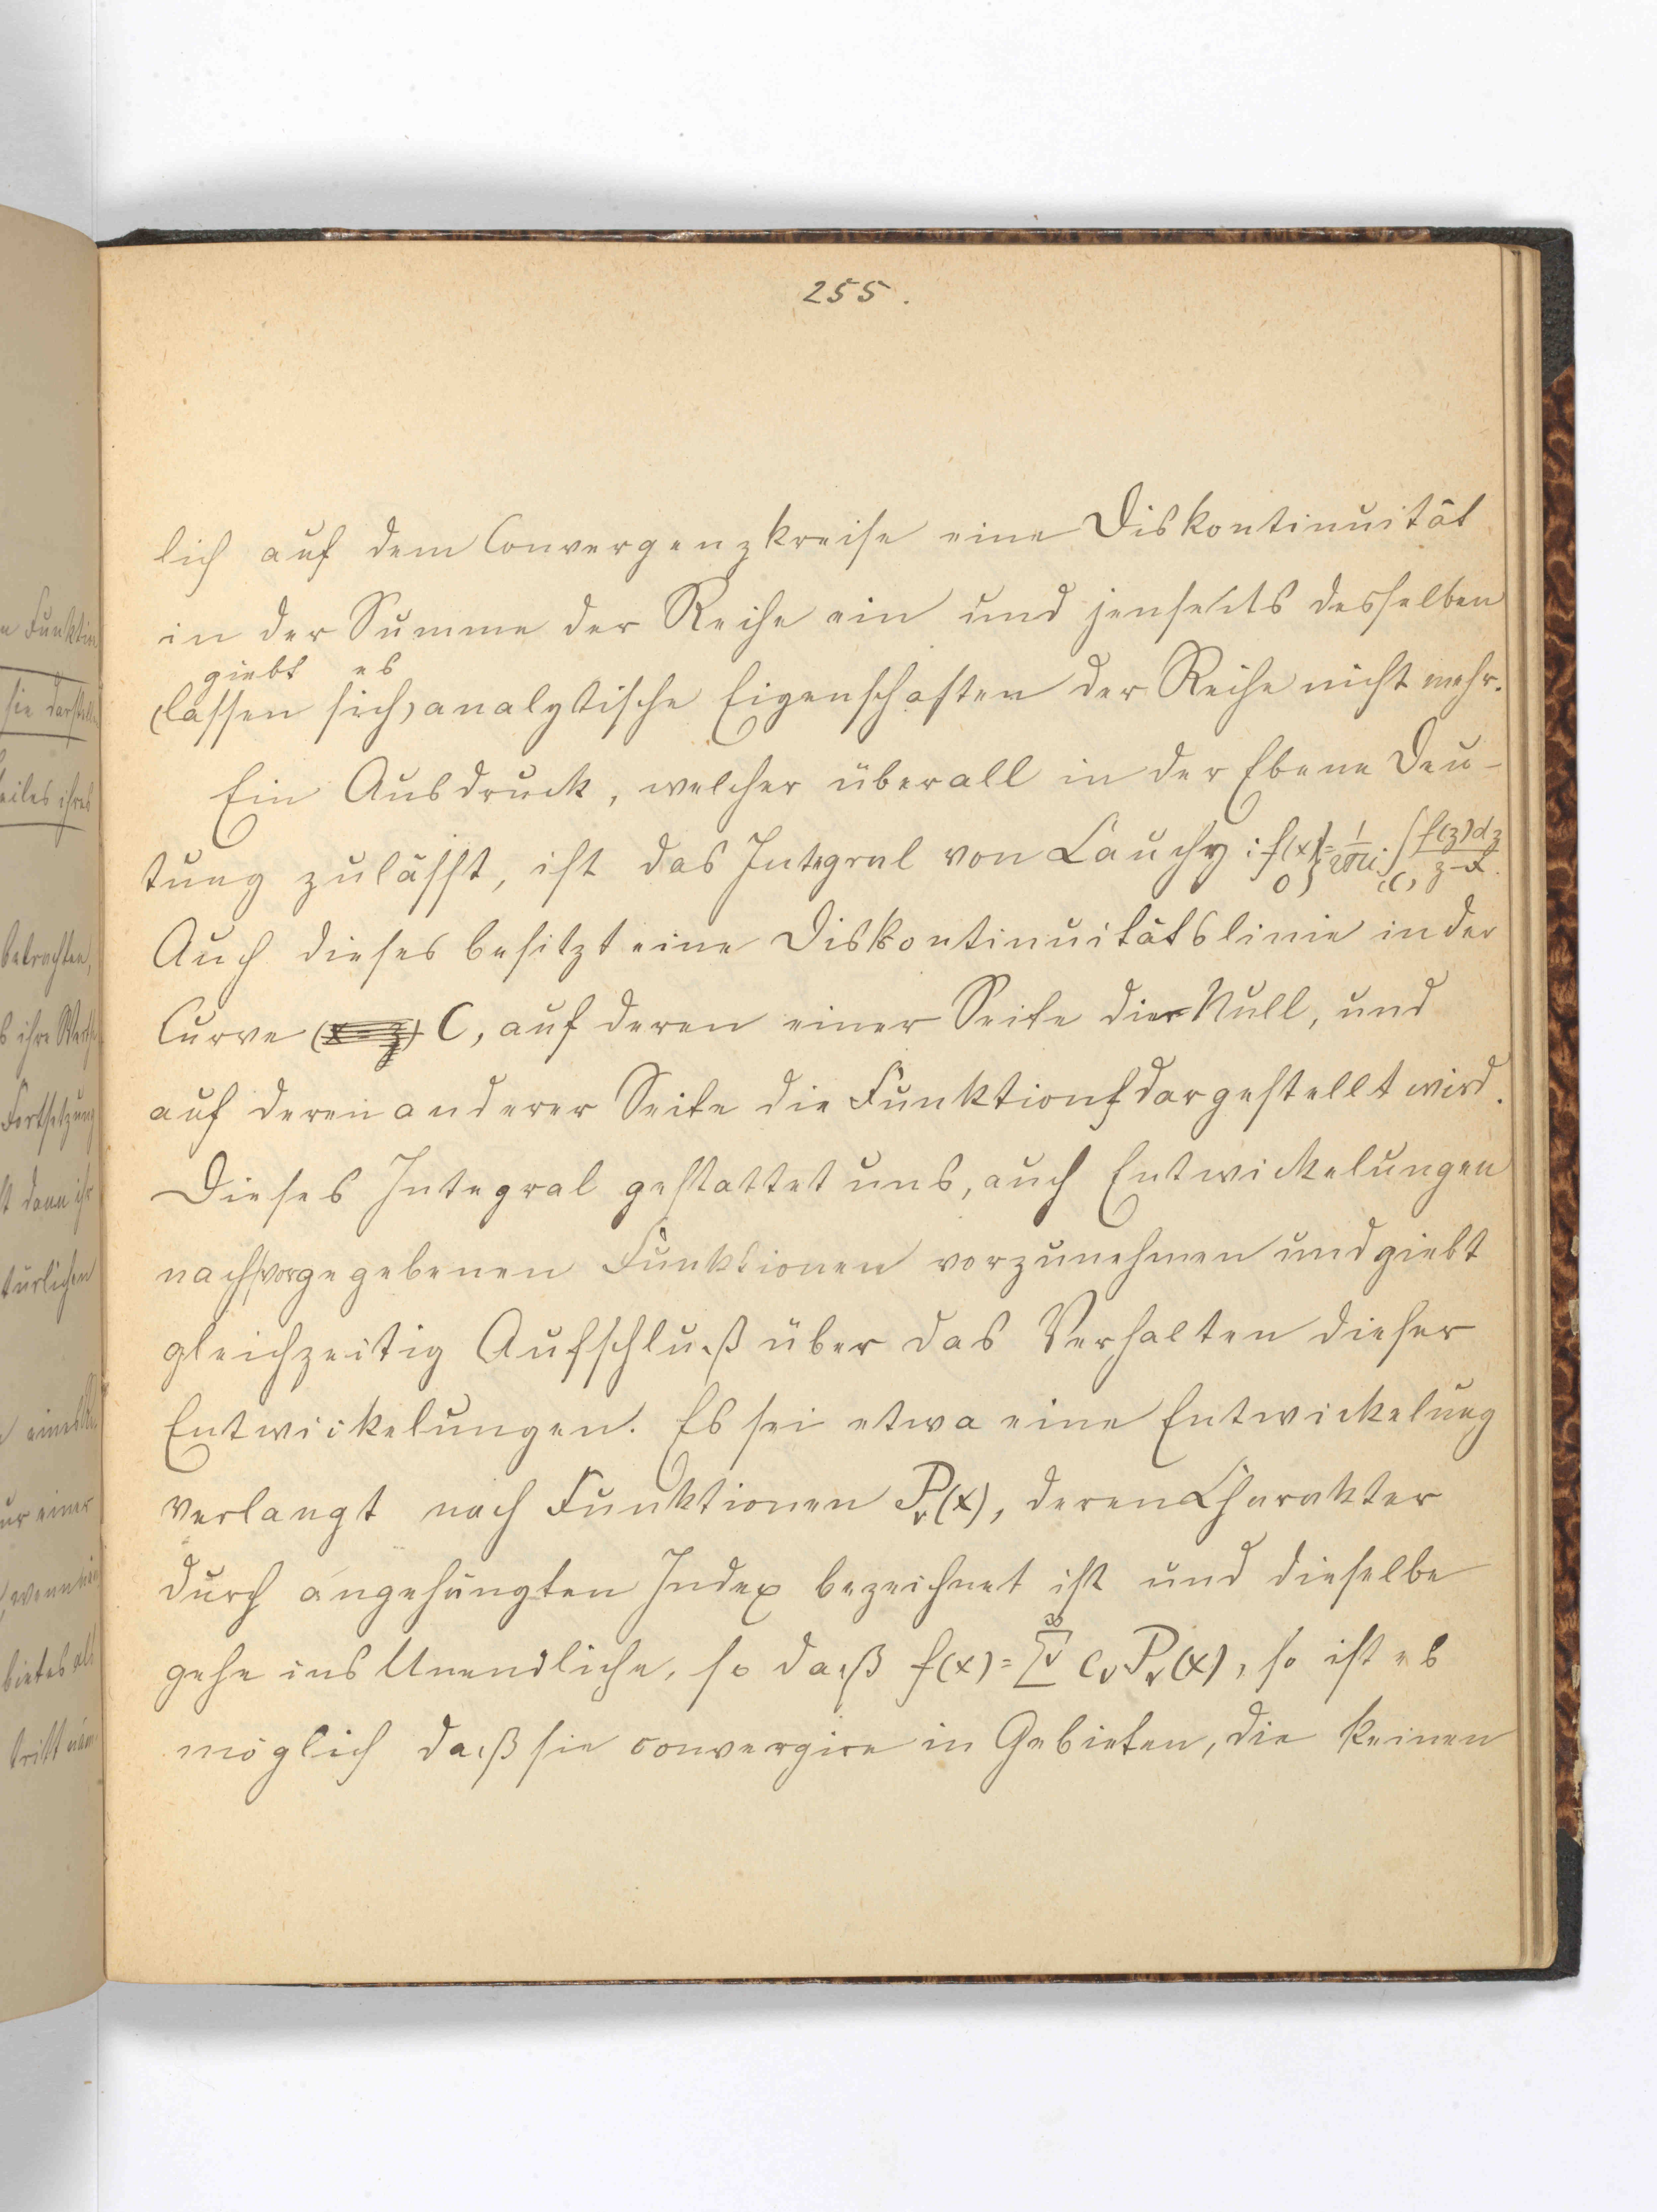 255.
lich auf dem Convergenzkreise eine Diskontinuität
in der Summe der Reihe ein und jenseits desselben
giebt es
(lassen sich) analytische Eigenschaften der Reihe nicht mehr.
Ein Ausdruck, welcher überall in der Ebene Deu-
tung zulässt, ist das Integral von Cauchy: f(x)/0} = 1/2πi ∫(C) f(z)dz/z-x.
Auch dieses besitzt eine Diskontinuitätslinie in der
Curve C, auf deren einer Seite die Null, und
auf deren anderer Seite die Funktion f dargestellt wird.
Dieses Integral gestattet uns, auch Entwickelungen
nach vorgegebenen Funktionen vorzunehmen und giebt
gleichzeitig Aufschluß über das Verhalten dieser
Entwickelungen. Es sei etwa eine Entwickelung
verlangt nach Funktionen Pᵥ(x), deren Charakter
durch angehängten Index bezeichnet ist und dieselbe
gehe ins Unendliche, so daß f(x) = ∑ᵥ^∞ cᵥPᵥ(x), so ist es
möglich daß sie convergire in Gebieten, die keinen
n Funktion
sie darstellt
eiles ihres
betrachten,
s ihre Werthe
Fortsetzung
t dann ihr
türlichen
ur einer
bietes als
tritt näm-